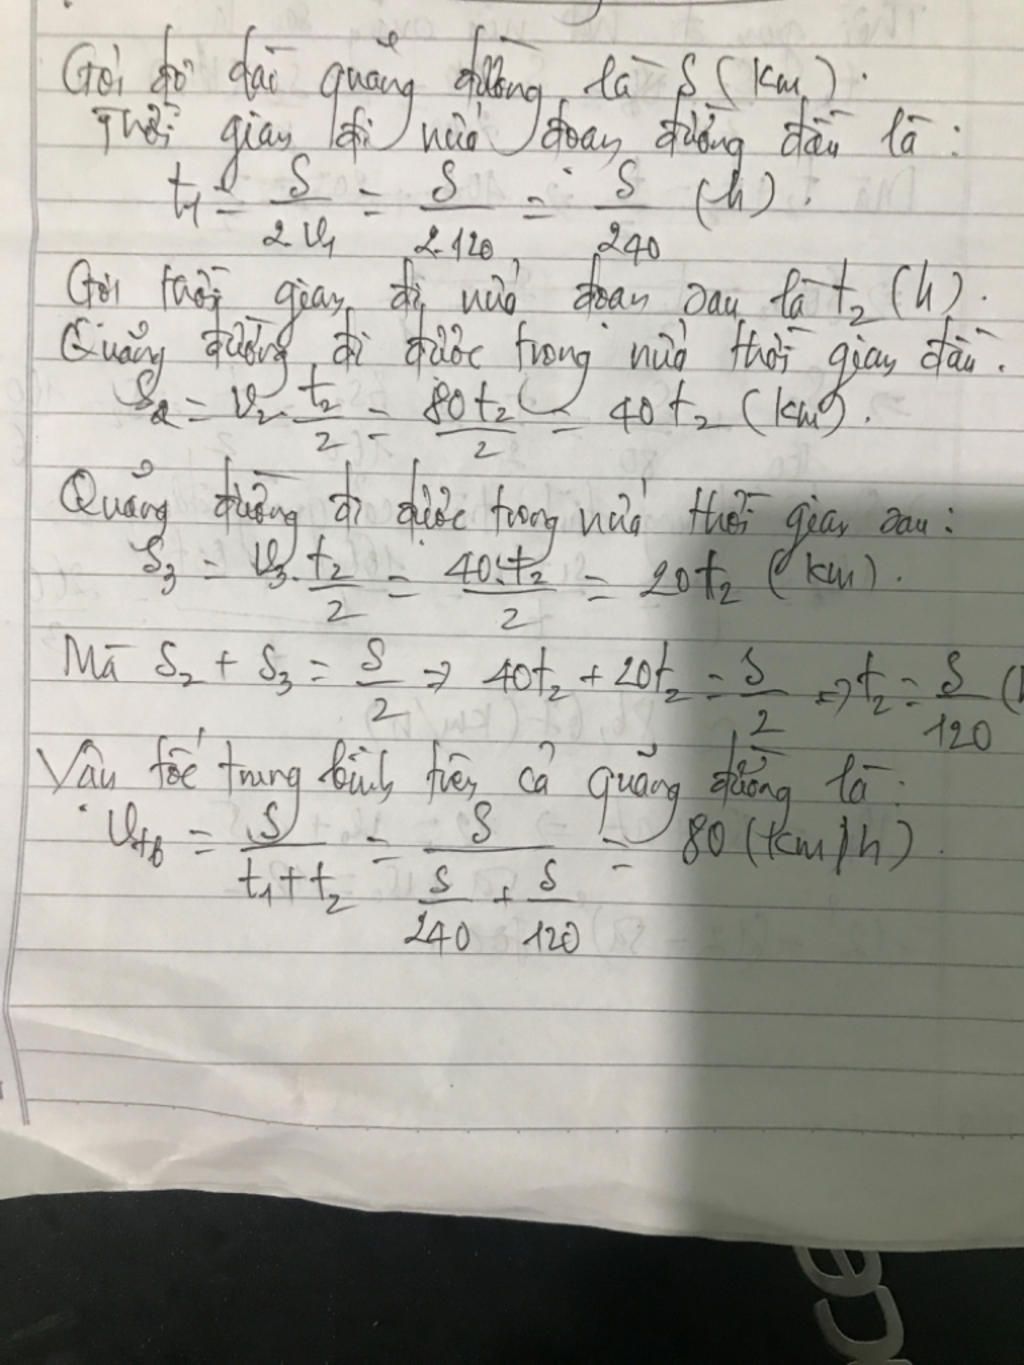 Gọi độ dài quãng đường là S (km).
Thời gian đi nửa đoạn đường đầu là:
t₁ = S/2v₁ = S/2.120 = S/240 (h).
Gọi thời gian đi nửa đoạn sau là t₂ (h).
Quãng đường đi được trong nửa thời gian đầu.
S₂ = v₂.t₂/2 = 80t₂/2 = 40t₂ (km).
Quãng đường đi được trong nửa thời gian sau:
S₃ = v₃.t₂/2 = 40.t₂/2 = 20t₂ (km).
Mà S₂ + S₃ = S/2 => 40t₂ + 20t₂ = S/2 => t₂ = S/120 (h
Vận tốc trung bình trên cả quãng đường là:
vtb = S/(t₁+t₂) = S/(S/240 + S/120) = 80 (km/h).
ce